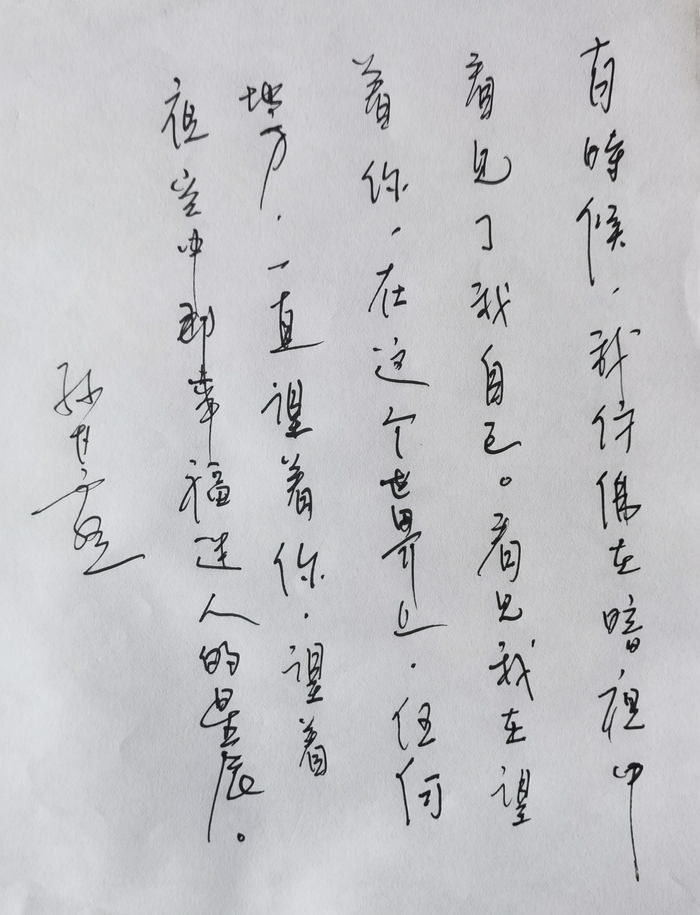 有時候，我仿佛在暗夜中
看见了我自己。看见我在望
着你，在这个世界上，任何
地方，一直望着你，望着
夜空中那幸福迷人的星辰。
孙甘露